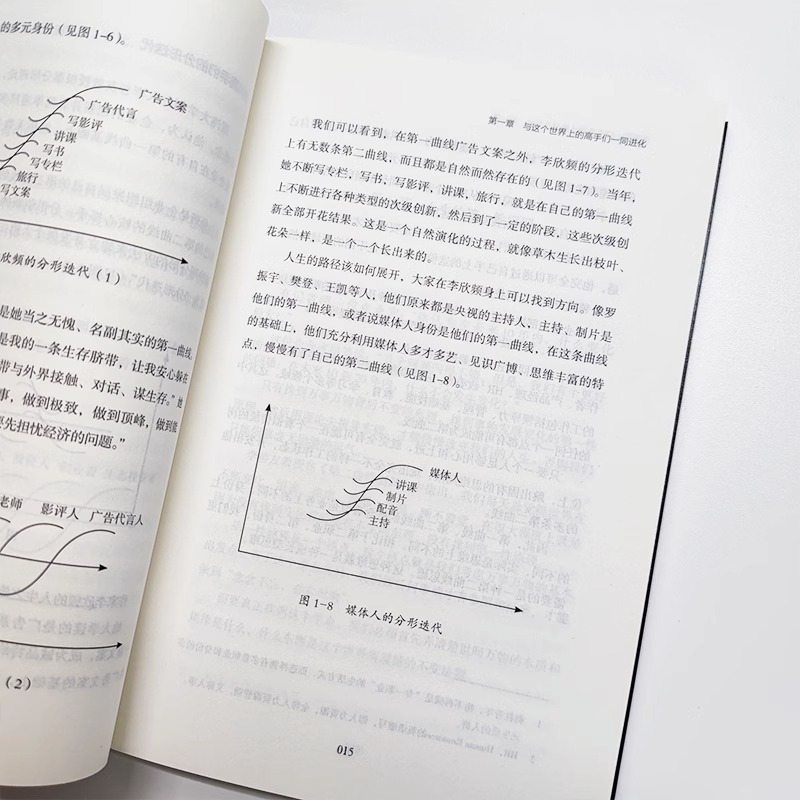 的多元身份（见图 1-6）。
广告文案
广告代言
写影评
讲课
写书
写专栏
旅行
写文案
欣频的分形迭代（1）
是她当之无愧、名副其实的第一曲线
是我的一条生存脐带，让我安心躲在
带与外界接触、对话、谋生存。”她
事，做到极致，做到顶峰，做到能
先担忧经济的问题。”
老师 影评人 广告代言人
（2）
第一章 与这个世界上的高手们一同进化
我们可以看到，在第一曲线广告文案之外，李欣频的分形迭代
上有无数条第二曲线，而且都是自然而然存在的（见图 1-7）。当年，
她不断写专栏，写书，写影评，讲课，旅行，就是在自己的第一曲线
上不断进行各种类型的次级创新，然后到了一定的阶段，这些次级创
新全部开花结果。这是一个自然演化的过程，就像草木生长出枝叶、
花朵一样，是一个一个长出来的。
人生的路径该如何展开，大家在李欣频身上可以找到方向。像罗
振宇、樊登、王凯等人，他们原来都是央视的主持人，主持、制片是
他们的第一曲线，或者说媒体人身份是他们的第一曲线，在这条曲线
的基础上，他们充分利用媒体人多才多艺、见识广博、思维丰富的特
点，慢慢有了自己的第二曲线（见图 1-8）。
媒体人
讲课
制片
配音
主持
图 1-8 媒体人的分形迭代
015